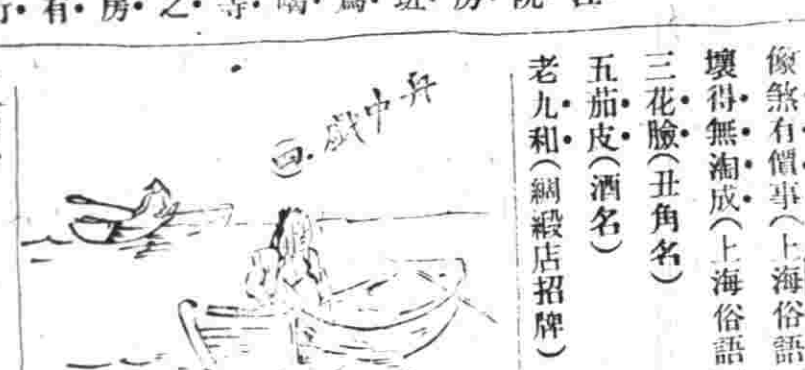 像煞有價事(上海俗語
壞得無淘成(上海俗語
三花臉(丑角名)
五茄皮(酒名)
老九和(綢緞店招牌)
舟中戲(四)